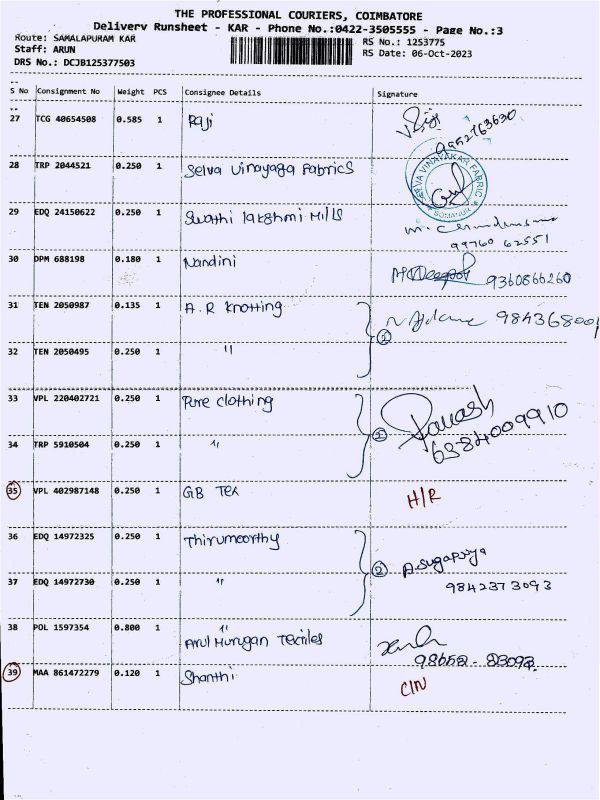 THE PROFESSIONAL COURIERS, COIMBATORE
Delivery Runsheet - KAR - Phone No.:0422-3505555 - Page No.:3
Route: SAMALAPURAM KAR
RS No.: 1253775
Staff: ARUN
RS Date: 06-Oct-2023
DRS No.: DCJB125377503
S No Consignment No Weight PCS Consignee Details Signature
27 TCG 40654508 0.585 1 Raji
9952763630
28 TRP 2044521 0.250 1 Selva Vinayaga Fabrics
SELVA VINAYAKAR FABRIC
SOMANUR
29 EDQ 24150622 0.250 1 Swathi lakshmi Mills
99760 62551
30 DPM 688198 0.180 1 Nandini 9360866260
31 TEN 2050987 0.135 1 A.R Knotting
② 984368001
32 TEN 2050495 0.250 1 "
33 VPL 220402721 0.250 1 Pure clothing
② 6384009910
34 TRP 5910504 0.250 1 "
35 VPL 402987148 0.250 1 GB Tex H/R
36 EDQ 14972325 0.250 1 Thirumoorthy
② A.Sugapriya
37 EDQ 14972730 0.250 1 " 9842373093
38 POL 1597354 0.800 1 "
Arul Murugan Textiles
98652-83093
39 MAA 861472279 0.120 1 Shanthi C/N